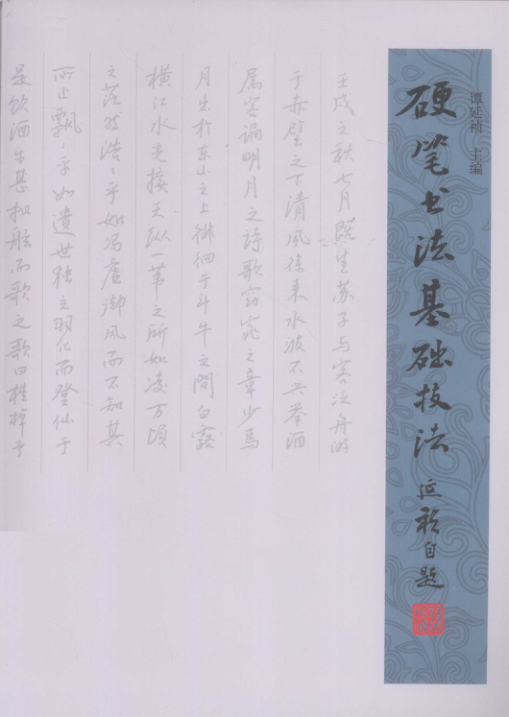 谭延祯 主编
硬笔书法基础技法
延祯自题
壬戌之秋七月既望苏子与客泛舟游
于赤壁之下清风徐来水波不兴举酒
属客诵明月之诗歌窈窕之章少焉
月出于东山之上徘徊于斗牛之间白露
横江水光接天纵一苇之所如凌万顷
之茫然浩浩乎如冯虚御风而不知其
所止飘飘乎如遗世独立羽化而登仙于
是饮酒乐甚扣舷而歌之歌曰桂棹兮